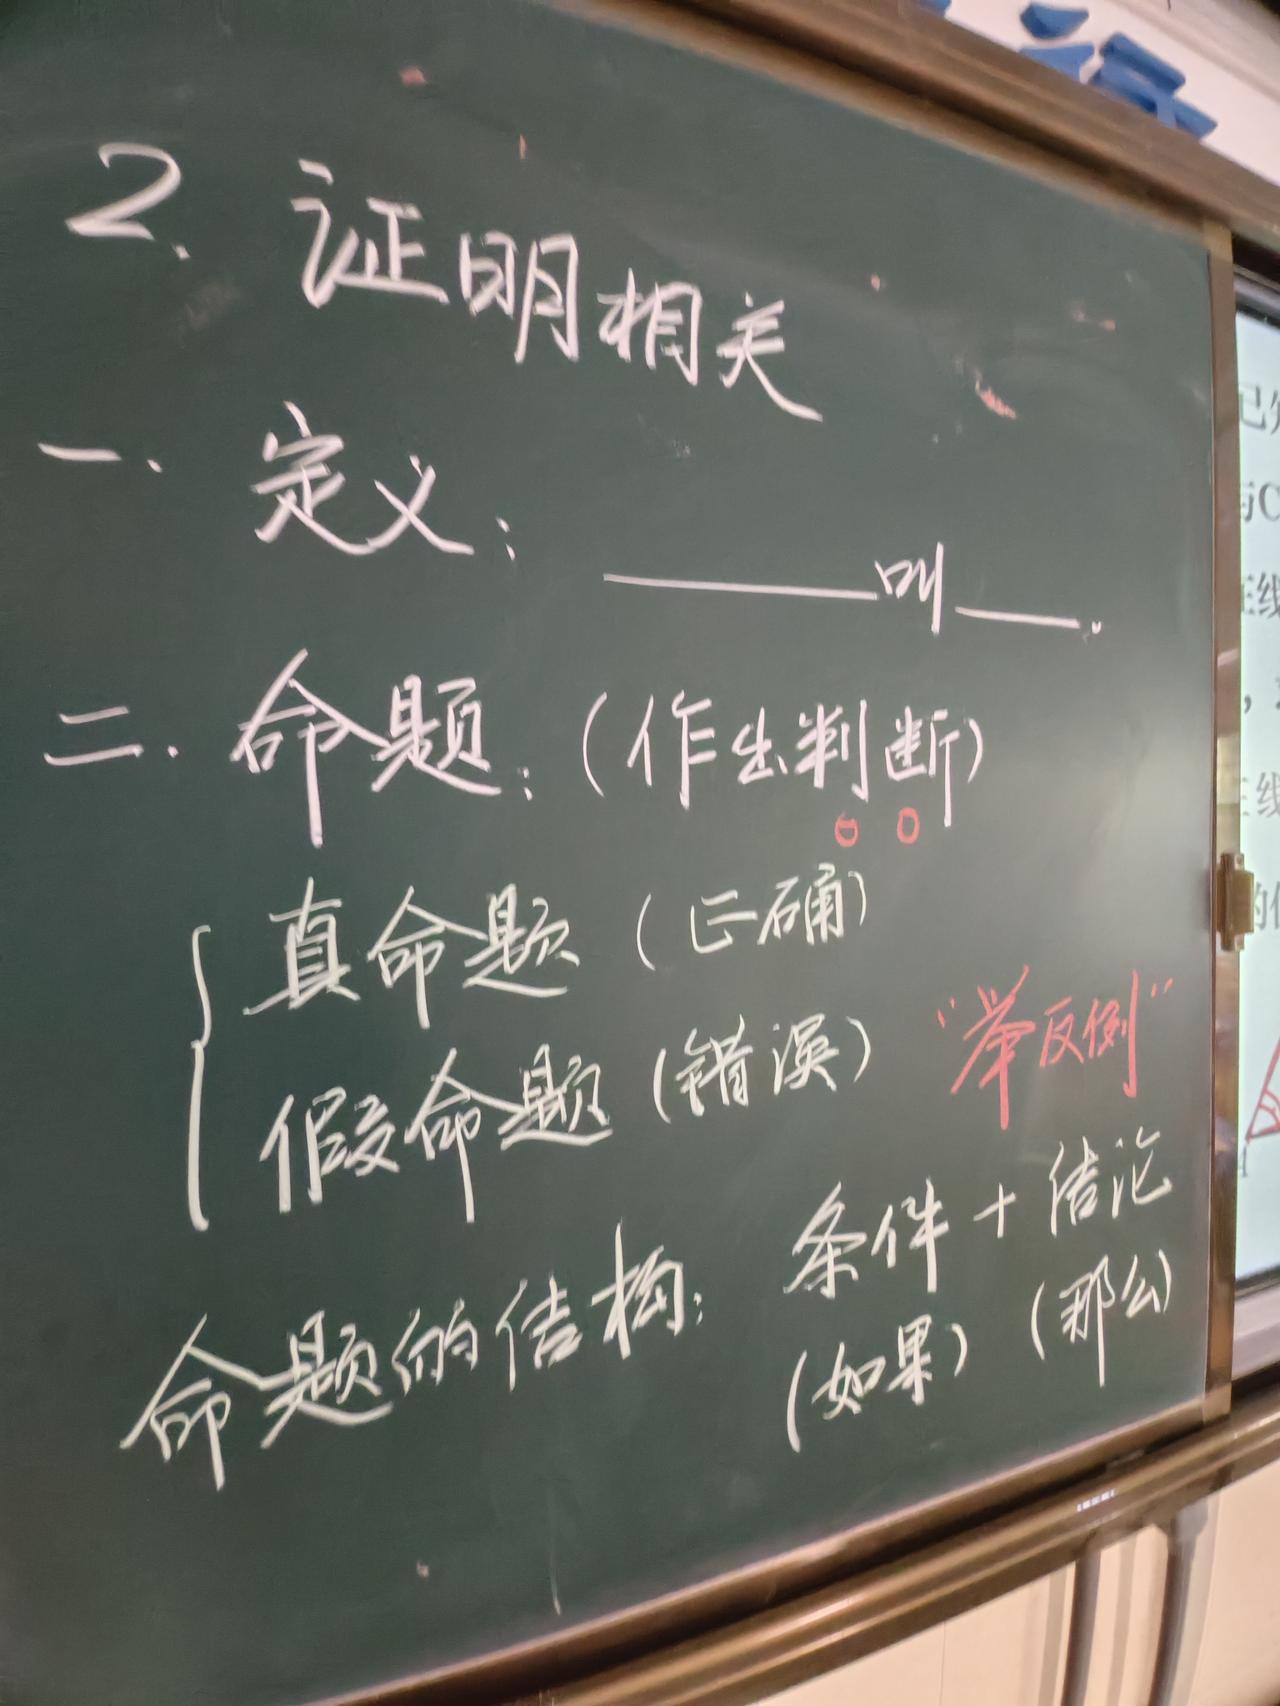 2. 证明相关
一. 定义: ______叫___.
二. 命题: (作出判断)
真命题 (正确)
假命题 (错误) “举反例”
命题的结构: 条件 + 结论
(如果) (那么)
与C